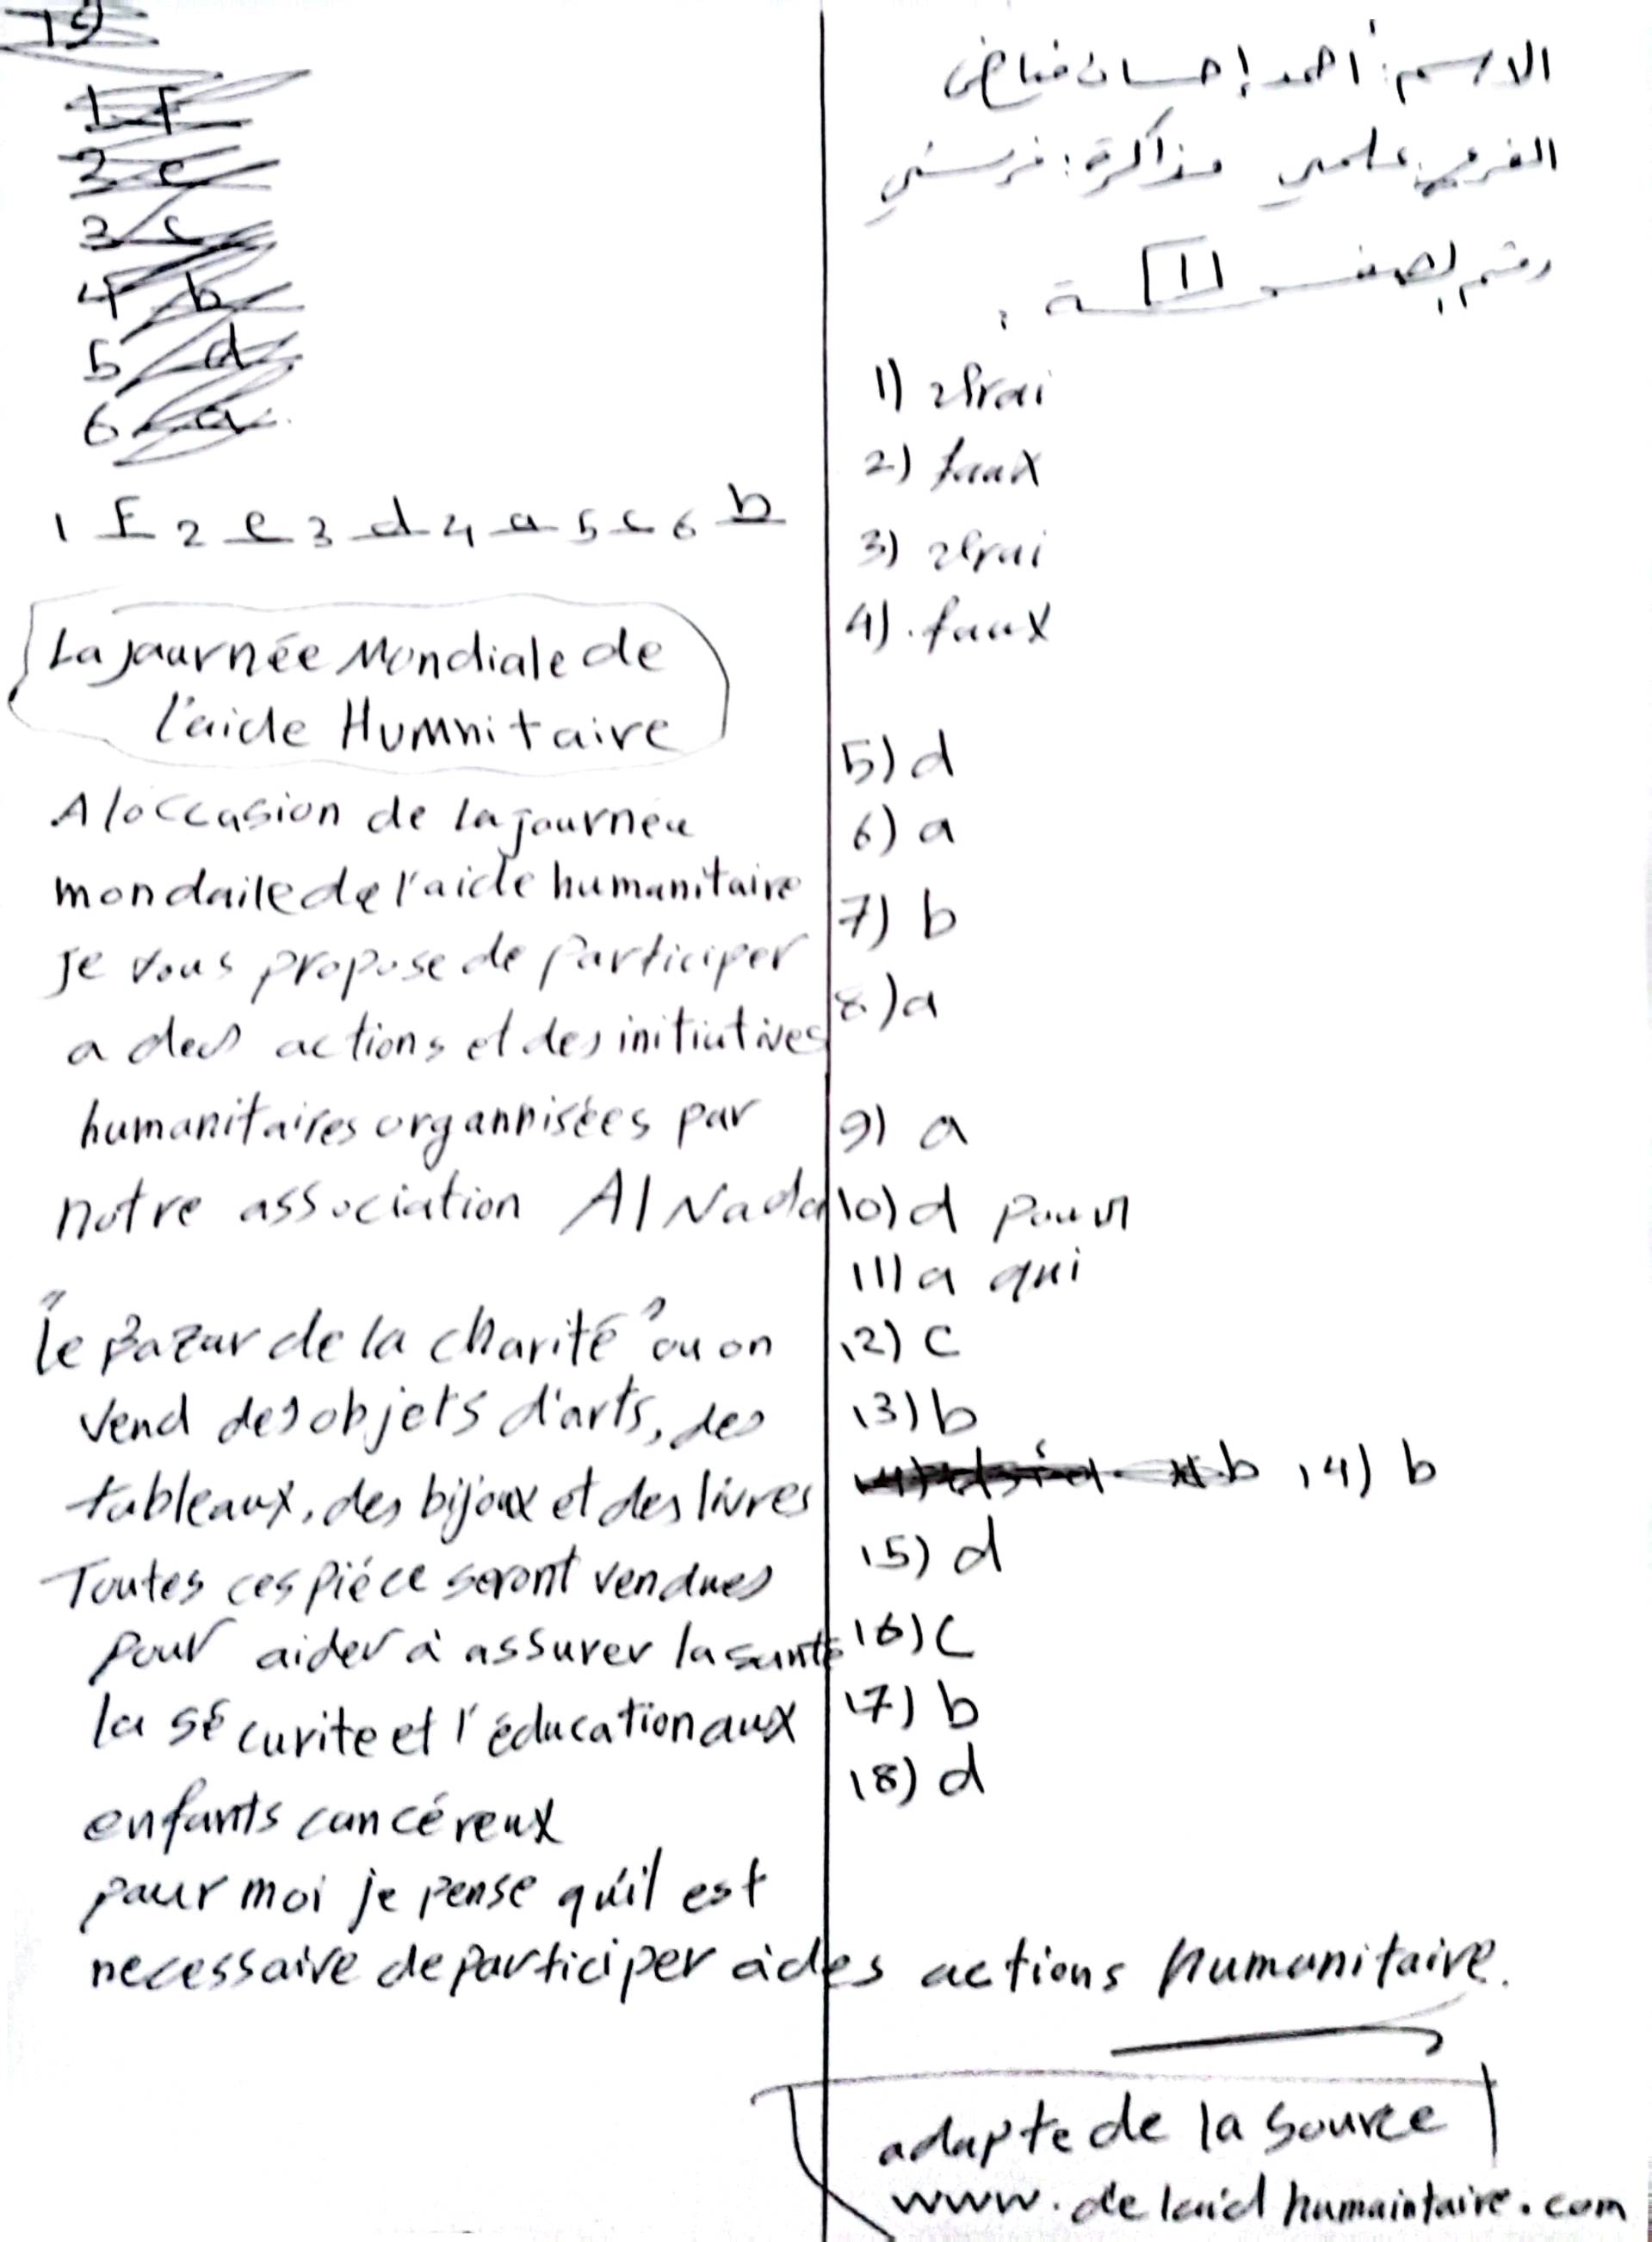 الاسم: أحمد إحسان
الفرع: علمي مذاكرة: فرنسي
رقم الصفحة: 1
1) Vrai
2) faux
3) Vrai
4). faux
5) d
6) a
7) b
8) a
9) a
10) d pour
11) a qui
12) c
13) b
b 14) b
15) d
16) c
17) b
18) d
19
1 f
2 e
3 c
4 b
5 d
6 a
1 F 2 e 3 d 4 a 5 c 6 b
La journée Mondiale de
l'aide Humnitaire
A l'occasion de la journée
mondaile de l'aide humanitaire
je vous propose de participer
a des actions et des initiatives
humanitaires organnisées par
notre association Al Nada
"le Bazar de la charité" ou on
vend des objets d'arts, des
tableaux, des bijoux et des livres
Toutes ces piéce seront vendues
pour aider à assurer la santé
la sécurite et l'éducation aux
enfants cancéreux
pour moi je pense qu'il est
necessaire de participer à des actions humanitaire.
adapte de la source
www.de laid humaintaire.com